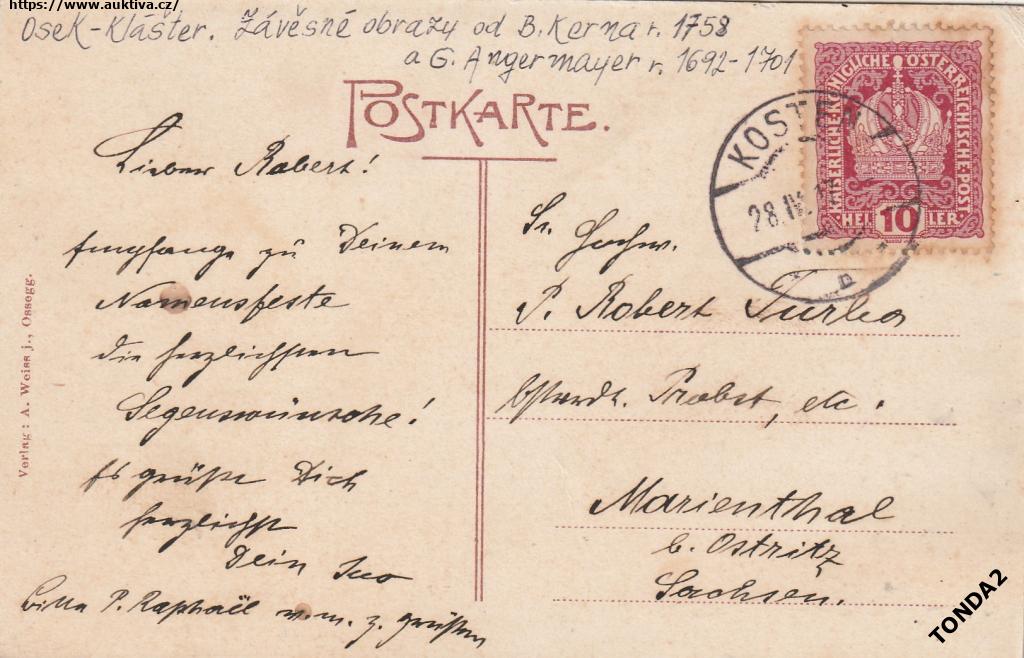 https://www.auktiva.cz/
Osek-Klášter. Závěsné obrazy od B. Kerna r. 1758
a G. Angermayer r. 1692-1701
POSTKARTE.
KAISERLICHE KÖNIGLICHE ÖSTERREICHISCHE POST
HELLER
10
KOSTEN
28.IV.
Lieber Robert!
Empfange zu Deinem
Namensfeste
die herzlichsten
Segenswünsche!
Es grüßt Dich
herzlichst
Dein Ivo
Bitte P. Raphaël v.m. z. grüßen
Sr. Hochw.
P. Robert Turba
Propst, etc.
Marienthal
b. Ostritz
Sachsen.
Verlag: A. Weiss j., Ossegg.
TONDA2